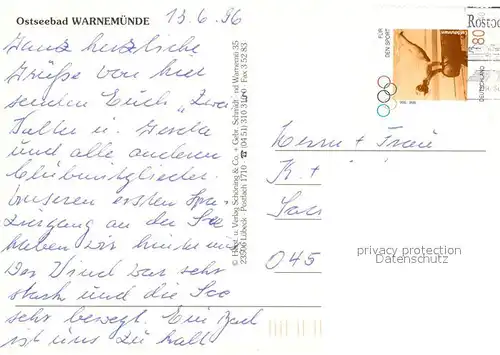 Ostseebad WARNEMÜNDE
13.6.96
Ganz herzliche
Grüße von hier
senden Euch
Walter u. Gerda
und alle anderen
Clubmitglieder.
Unseren ersten Spa-
ziergang an der See
haben wir hinter uns
Der Wind war sehr
stark und die See
sehr bewegt. Ein Bad
ist uns zu kalt
© Horst u. Verlag Schöning & Co. + Gebr. Schmidt
23506 Lübeck Postfach 1710 ☎ (04 51) 310 31-0 Fax 3 52 83
Rostoc
FÜR
DEN SPORT
80
DEUTSCHLAND
Herrn + Frau
K. +
045
privacy protection
Datenschutz